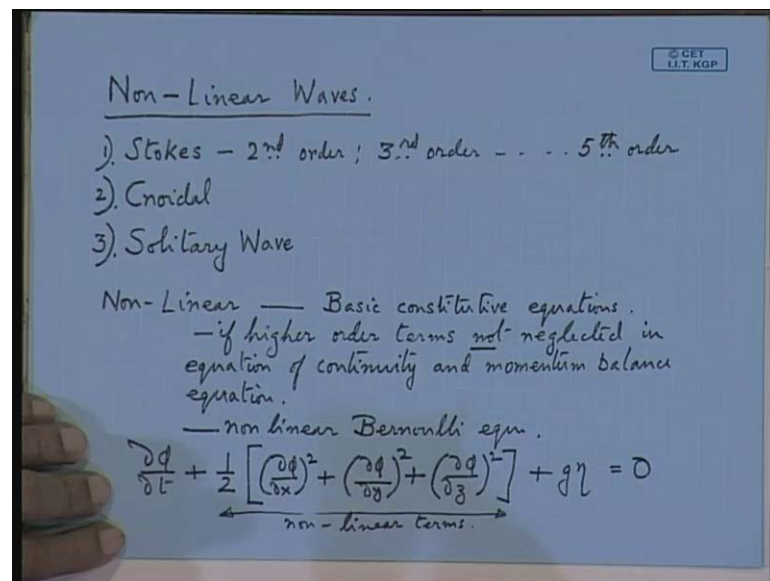 © CET
I.I.T. KGP
Non-Linear Waves.
1). Stokes - 2nd order; 3rd order - . . . 5th order
2). Cnoidal
3). Solitary Wave
Non-Linear — Basic constitutive equations.
- if higher order terms not neglected in
equation of continuity and momentum balance
equation.
— non linear Bernoulli eqn.
∂ϕ/∂t + 1/2 [(∂ϕ/∂x)² + (∂ϕ/∂y)² + (∂ϕ/∂z)²] + gη = 0
non-linear terms.